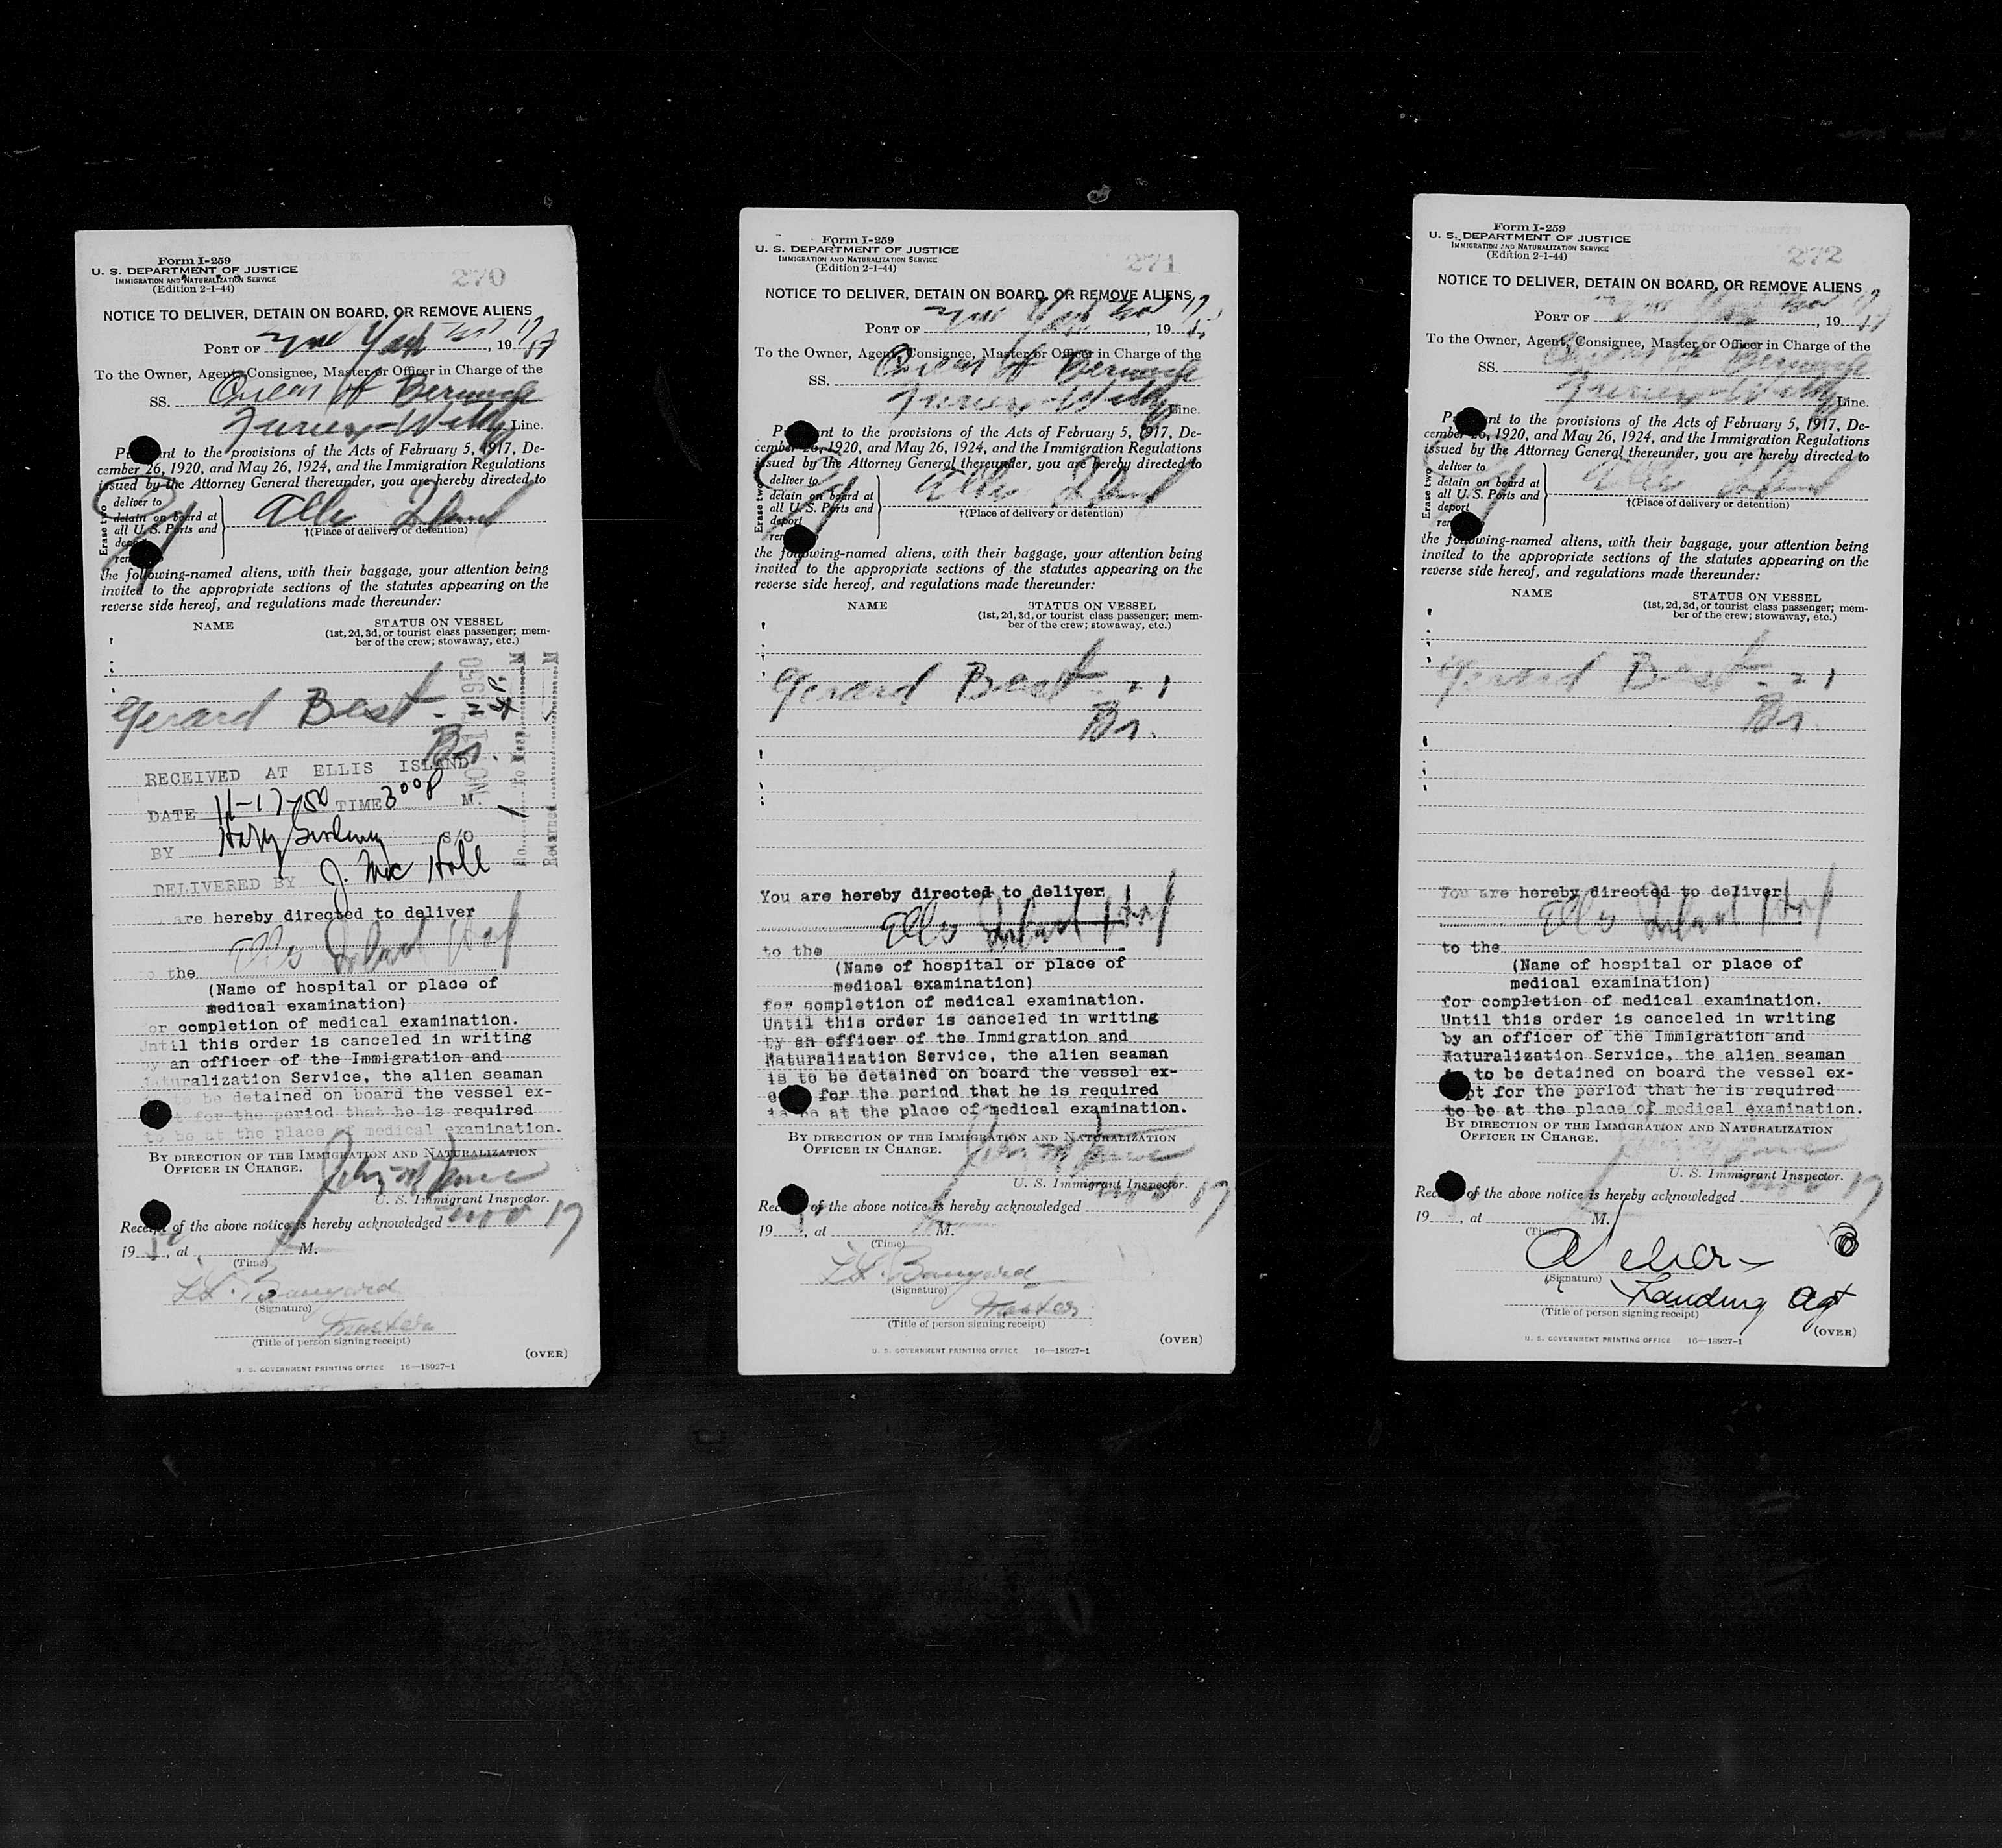 Form I-259
U. S. DEPARTMENT OF JUSTICE
IMMIGRATION AND NATURALIZATION SERVICE
(Edition 2-1-44)
270
NOTICE TO DELIVER, DETAIN ON BOARD, OR REMOVE ALIENS
PORT OF New York Nov 17, 19
To the Owner, Agent, Consignee, Master or Officer in Charge of the
SS. Queen of Bermuda
Furness-Withy Line.
Pursuant to the provisions of the Acts of February 5, 1917, De-
cember 26, 1920, and May 26, 1924, and the Immigration Regulations
issued by the Attorney General thereunder, you are hereby directed to
Erase two
deliver to
detain on board at
all U. S. Ports and
deport
Ellis Island
†(Place of delivery or detention)
the following-named aliens, with their baggage, your attention being
invited to the appropriate sections of the statutes appearing on the
reverse side hereof, and regulations made thereunder:
NAME STATUS ON VESSEL
(1st, 2d, 3d, or tourist class passenger; mem-
ber of the crew; stowaway, etc.)
Gerard Best
Br.
RECEIVED AT ELLIS ISLAND
DATE 11-17-50 TIME 3 00 P M.
BY S/O
DELIVERED BY J. Mc Hall
are hereby directed to deliver
to the Ellis Island Hosp
(Name of hospital or place of
medical examination)
for completion of medical examination.
Until this order is canceled in writing
by an officer of the Immigration and
Naturalization Service, the alien seaman
is to be detained on board the vessel ex-
cept for the period that he is required
to be at the place of medical examination.
BY DIRECTION OF THE IMMIGRATION AND NATURALIZATION
OFFICER IN CHARGE.
U. S. Immigrant Inspector.
Receipt of the above notice is hereby acknowledged Nov 17
19, at M.
(Time)
(Signature)
Master
(Title of person signing receipt)
(OVER)
U. S. GOVERNMENT PRINTING OFFICE 16—18927-1
Form I-259
U. S. DEPARTMENT OF JUSTICE
IMMIGRATION AND NATURALIZATION SERVICE
(Edition 2-1-44)
271
NOTICE TO DELIVER, DETAIN ON BOARD, OR REMOVE ALIENS
PORT OF New York Nov 17, 19
To the Owner, Agent, Consignee, Master or Officer in Charge of the
SS. Queen of Bermuda
Furness-Withy Line.
Pursuant to the provisions of the Acts of February 5, 1917, De-
cember 26, 1920, and May 26, 1924, and the Immigration Regulations
issued by the Attorney General thereunder, you are hereby directed to
Erase two
deliver to
detain on board at
all U. S. Ports and
deport
Ellis Island
†(Place of delivery or detention)
the following-named aliens, with their baggage, your attention being
invited to the appropriate sections of the statutes appearing on the
reverse side hereof, and regulations made thereunder:
NAME STATUS ON VESSEL
(1st, 2d, 3d, or tourist class passenger; mem-
ber of the crew; stowaway, etc.)
Gerard Best
Br.
You are hereby directed to deliver
to the Ellis Island Hosp
(Name of hospital or place of
medical examination)
for completion of medical examination.
Until this order is canceled in writing
by an officer of the Immigration and
Naturalization Service, the alien seaman
is to be detained on board the vessel ex-
cept for the period that he is required
to be at the place of medical examination.
BY DIRECTION OF THE IMMIGRATION AND NATURALIZATION
OFFICER IN CHARGE.
U. S. Immigrant Inspector.
Receipt of the above notice is hereby acknowledged Nov 17
19, at M.
(Time)
(Signature)
Master
(Title of person signing receipt)
(OVER)
U. S. GOVERNMENT PRINTING OFFICE 16—18927-1
Form I-259
U. S. DEPARTMENT OF JUSTICE
IMMIGRATION AND NATURALIZATION SERVICE
(Edition 2-1-44)
272
NOTICE TO DELIVER, DETAIN ON BOARD, OR REMOVE ALIENS
PORT OF New York Nov 17, 19
To the Owner, Agent, Consignee, Master or Officer in Charge of the
SS. Queen of Bermuda
Furness-Withy Line.
Pursuant to the provisions of the Acts of February 5, 1917, De-
cember 26, 1920, and May 26, 1924, and the Immigration Regulations
issued by the Attorney General thereunder, you are hereby directed to
Erase two
deliver to
detain on board at
all U. S. Ports and
deport
Ellis Island
†(Place of delivery or detention)
the following-named aliens, with their baggage, your attention being
invited to the appropriate sections of the statutes appearing on the
reverse side hereof, and regulations made thereunder:
NAME STATUS ON VESSEL
(1st, 2d, 3d, or tourist class passenger; mem-
ber of the crew; stowaway, etc.)
Gerard Best
Br.
You are hereby directed to deliver
to the Ellis Island Hosp
(Name of hospital or place of
medical examination)
for completion of medical examination.
Until this order is canceled in writing
by an officer of the Immigration and
Naturalization Service, the alien seaman
is to be detained on board the vessel ex-
cept for the period that he is required
to be at the place of medical examination.
BY DIRECTION OF THE IMMIGRATION AND NATURALIZATION
OFFICER IN CHARGE.
U. S. Immigrant Inspector.
Receipt of the above notice is hereby acknowledged Nov 17
19, at M.
(Time)
(Signature)
Landing Agt
(Title of person signing receipt)
(OVER)
U. S. GOVERNMENT PRINTING OFFICE 16—18927-1